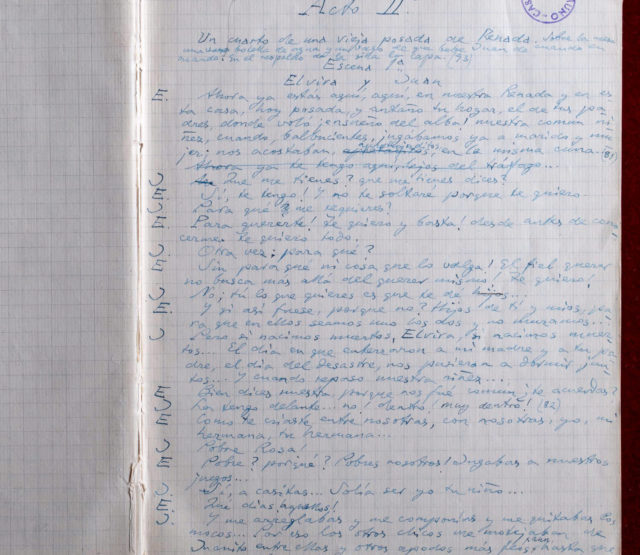 Acto II
UNO-CAS
Un cuarto de una vieja posada de Renada. Sobre la mesa
una botella de agua y un vaso de que bebe Juan de cuando en
cuando. En el respaldo de la silla la capa. (73)
Escena 1a
Elvira y Juan
E. Ahora ya estás aquí, aquí, en nuestra Renada y en es-
ta casa, hoy posada, y antaño tu hogar, el de tus pa-
dres, donde voló ¡ensueño del alba! nuestra común ni-
ñez, cuando, balbucientes, jugábamos ya a marido y mu-
jer, nos acostaban, en la misma cuna. (81)
Ahora ya te tengo aquí, lejos del tráfago...
J. Qué me tienes? que me tienes dices?
E. Sí, te tengo! Y no te soltaré porque te quiero.
J. Para qué me requieres?
E. Para quererte! Te quiero y basta! desde antes de cono-
cerme te quiero todo.
J. Otra vez: para qué?
E. Sin para qué ni cosa que lo valga! El fiel querer
no busca más allá del querer mismo! Te quiero!
J. No; tú lo que quieres es que te dé hijos...
E. Y si así fuese, porque no? Hijos de ti y míos, pa-
ra que en ellos seamos uno los dos y no muramos...
J. Pero si nacimos muertos, Elvira, si nacimos muer-
tos... El día en que enterraron a mi madre y a tu pa-
dre, el día del desastre, nos pusieron a dormir jun-
tos... Y cuando repaso nuestra niñez...
E. Bien dices nuestra porque nos fué común; te acuerdas?
J. La tengo delante... no! dentro! muy dentro! (82)
E. Como te criaste entre nosotras, con nosotras, yo, mi
hermana, tu hermana...
J. Pobre Rosa!
E. Pobre? porqué? Pobres nosotros! Jugabas a nuestros
juegos...
J. Sí, a casitas... Solía ser yo tu niño...
E. Qué días aquellos!
J. Y me arreglabas y me componías y me quitabas los
mocos... Por eso los otros chicos me motejaban de
Juanito entre ellas y otros apodos más para